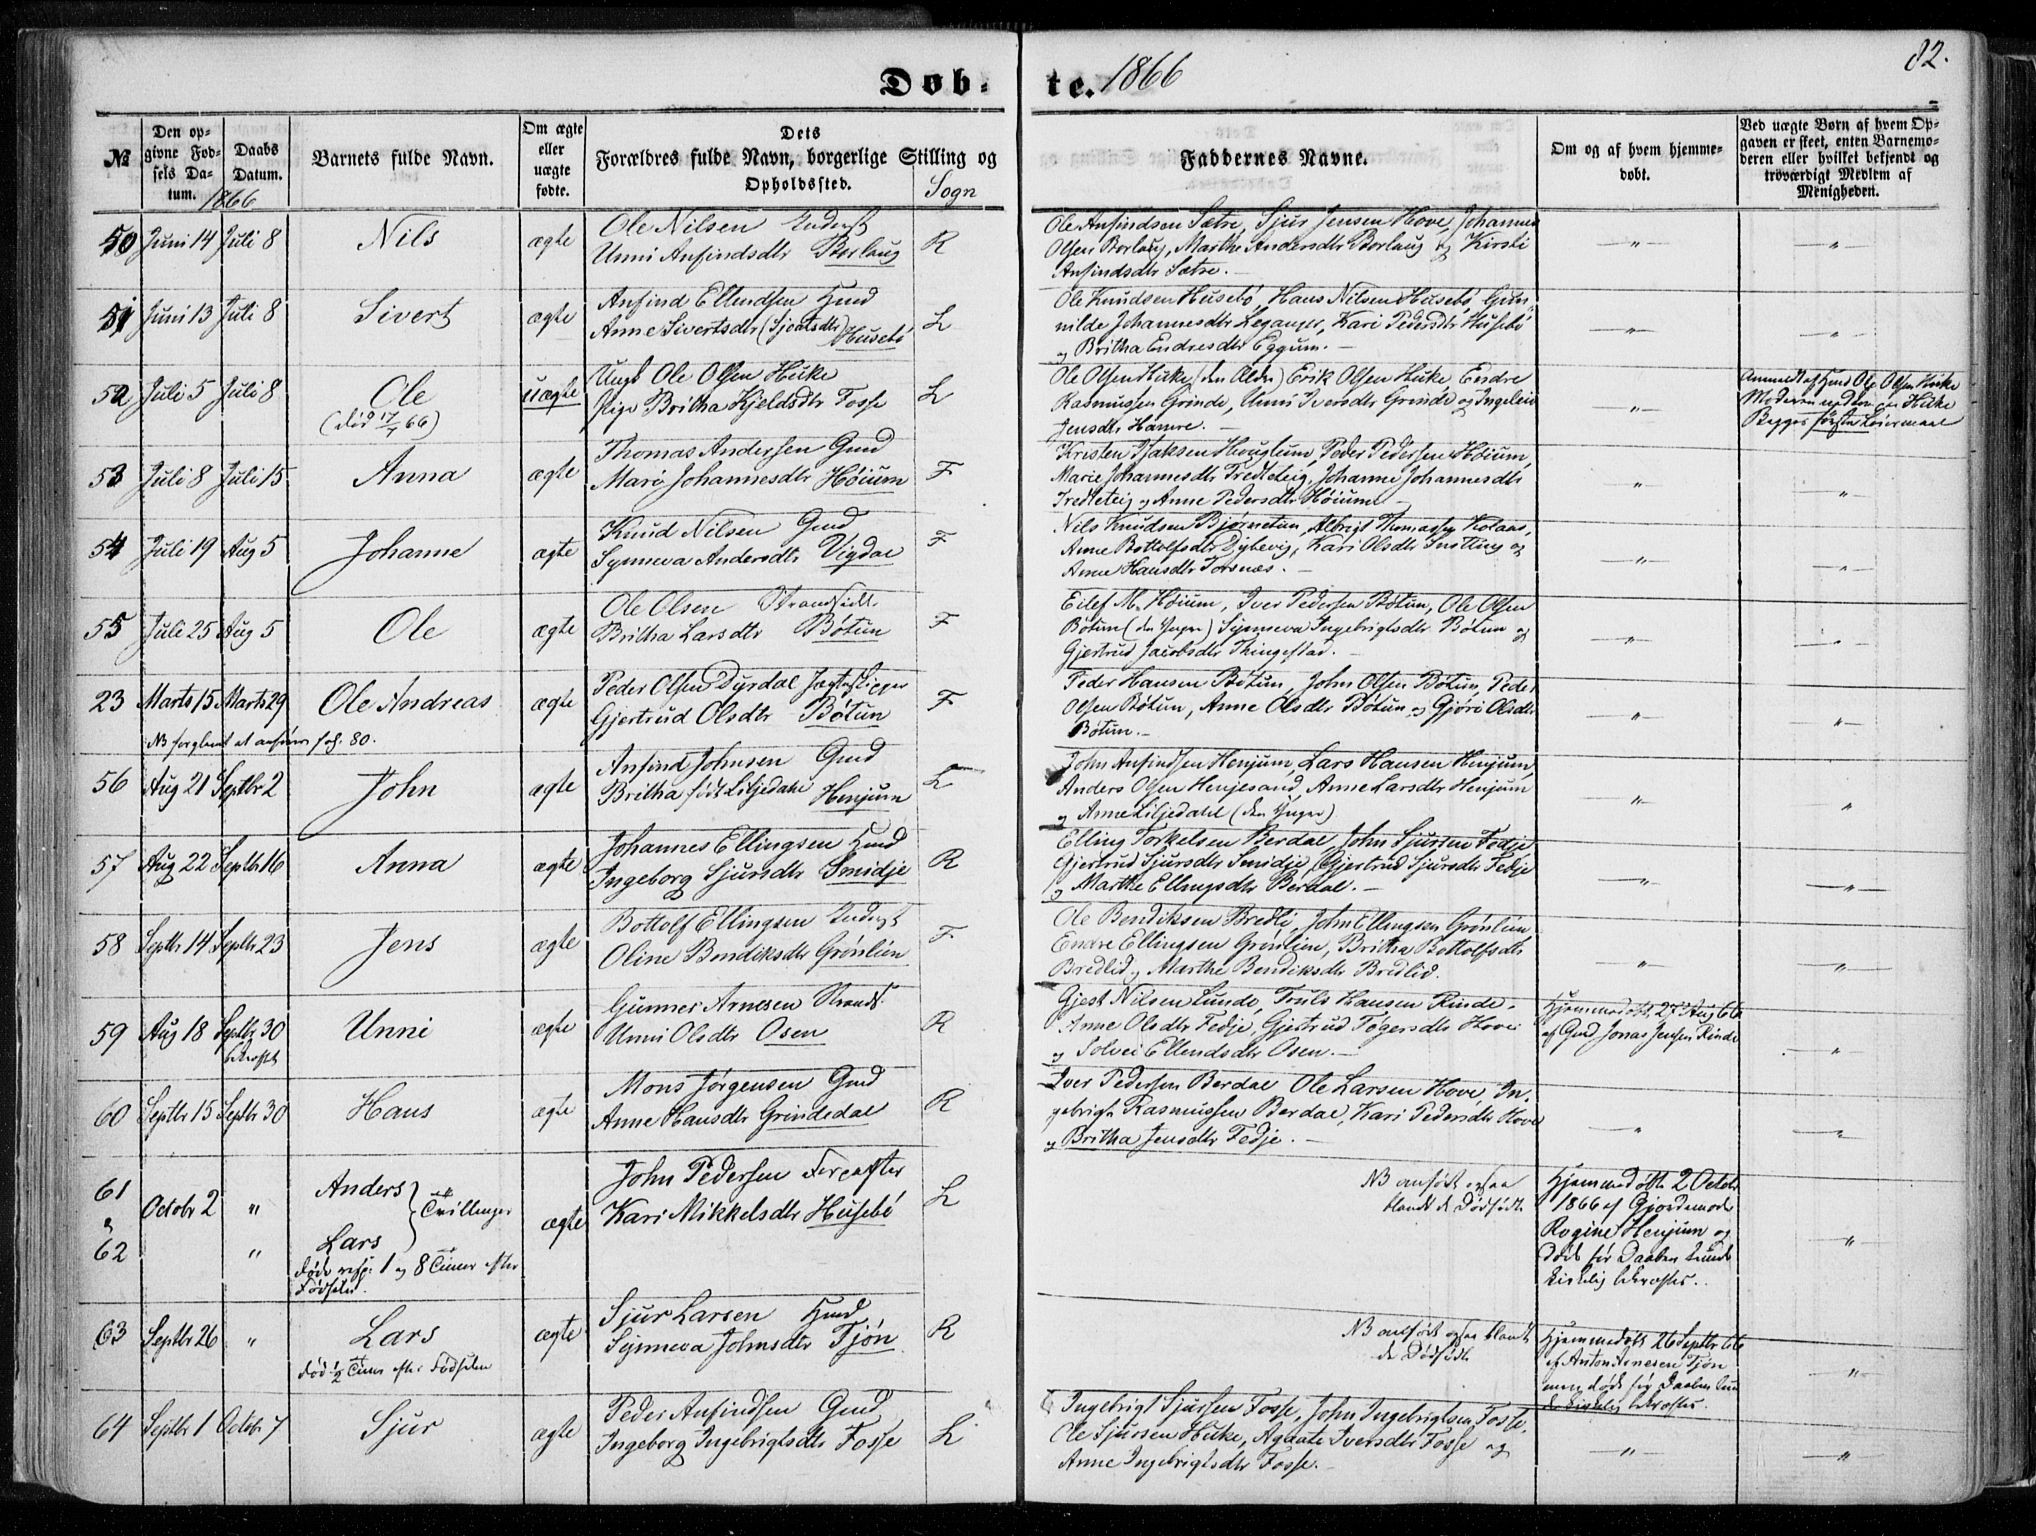 82.
Døb- te. 1866
№
Den op-
givne Fød-
sels Da-
tum.
1866
Daabs
Datum.
Barnets fulde Navn.
Om ægte
eller
uægte
fødte.
Dets
Forældres fulde Navn, borgerlige Stilling og
Opholdssted.
Sogn
Faddernes Navne.
Om og af hvem hjemme-
døbt.
Ved uægte Børn af hvem Op-
gaven er skeet, enten Barnemo-
deren eller hvilket bekjendt og
troværdigt Medlem af
Menigheden.
50 Juni 14 Juli 8 Nils ægte
Ole Nilsen
Unni Anfindsdtr Borlaug R
Ole Anfindsen Sætre, Sjur Jensen Hove, Johannes
Olsen Borlaug, Marthe Andersdtr Borlaug og Kirsti
Anfindsdtr Sætre.
51 Juni 13 Juli 8 Sivert ægte
Anfind Ellendsen Gmd
Anne Sivertsdtr (Sjeatsdtr) Husebø L
Ole Knudsen Husebø, Hans Nilsen Husebø, Gun-
nilde Johannesdtr Leganger, Kari Pedersdtr Husebø
og Britha Endresdtr Eggum.
52 Juli 5 Juli 8 Ole uægte
(død 17/7 66)
Ungk Ole Olsen Huke
Pige Britha Kjeldsdtr Fosse L
Ole Olsen Huke (den Ældre) Erik Olsen Huke, Endre
Rasmussen Grinde, Unni Iversdtr Grinde og Ingeleiv
Jensdtr Hamre.
Anmeldt af Ole Olsen Huke
Moderen
Begges første Leiermaal
53 Juli 8 Juli 15 Anna ægte
Thomas Andersen Gmd
Mari Johannesdtr Høium F
Kristen Isaksen Houglum, Peder Pedersen Høium,
Marie Johannesdtr Tredteteig, Johanne Johannesdtr
Tredteteig og Anne Pedersdtr Høium
54 Juli 19 Aug 5 Johanne ægte
Knud Nilsen Gmd
Synneva Andersdtr Vigdal F
Nils Knudsen Bjørnetun, Albrigt Thomassen Kolaas,
Anne Bottolfsdtr Dybevig, Kari Olsdtr og
Anne Hansdtr Torsnæs.
55 Juli 25 Aug 5 Ole ægte
Ole Olsen Strandsidd.
Britha Larsdtr Bøtun F
Eilef M. Høium, Iver Pedersen Bøtun, Ole Olsen
Bøtun (den Yngre) Synneva Ingebrigtsdtr Bøtun og
Gjertrud Jacobsdtr Thingestad.
23 Marts 15 Marts 29 Ole Andreas ægte
NB forglemt at anføres fol. 80.
Peder Olsen Dyrdal Jægteskipper
Gjertrud Olsdtr Bøtun F
Peder Hansen Bøtun, John Olsen Bøtun, Peder
Olsen Bøtun, Anne Olsdtr Bøtun og Gjøri Olsdtr
Bøtun.
56 Aug 21 Septbr 2 John ægte
Anfind Johnsen Gmd
Britha født Liljedahl Henjum L
John Anfindsen Henjum, Lars Hansen Henjum,
Anders Olsen Henjesand, Anne Larsdtr Henjum
og Anne Liljedahl (den Yngre)
57 Aug 22 Septbr 16 Anna ægte
Johannes Ellingsen Gmd
Ingeborg Sjursdtr Smidje R
Elling Torkelsen Berdal, John Sjursen Fedje
Gjertrud Sjursdtr Smidje, Gjertrud Sjursdtr Fedje
og Marthe Ellingsdtr Berdal.
58 Septbr 14 Septbr 23 Jens ægte
Bottolf Ellingsen
Oline Bendiksdtr Grønlien F
Ole Bendiksen Bredli, John Ellingsen Grønlien
Endre Ellingsen Grønlien, Britha Bottolfsdtr
Bredlid og Marthe Bendiksdtr Bredlid.
59 Aug 18 Septbr 30 Unni ægte
bekræftet
Gunner Arnesen Strands.
Unni Olsdtr Osen R
Gjest Nilsen Lunde, Truls Hansen Rinde.
Anne Olsdtr Fedje, Gjertrud Tøgersdtr Hove
og Solvei Ellendsdtr Osen.
Hjemmedøbt 27 Aug 66
af Gmd Jonas Jensen Rinde
60 Septbr 15 Septbr 30 Hans ægte
Mons Jørgensen Gmd
Anne Hansdtr Grindedal R
Iver Pedersen Berdal, Ole Larsen Hove, In-
gebrigt Rasmussen Berdal, Kari Pedersdtr Hove
og Britha Jensdtr Fedje.
61 Octobr 2 " Anders } Tvillinger ægte
&
62 " Lars
døde resp. 1 og 8 Timer efter
Fødselen
John Pedersen
Kari Mikkelsdtr Husebø L
NB anført ogsaa
blandt de Dødfødte
Hjemmedøbte 2 Octobr
1866 af Gjordemoder
Rogine Henjum og
døde før Daaben kunde
kirkelig bekræftes.
63 Septbr 26 " Lars ægte
død 1/2 Time efter Fødselen
Sjur Larsen Gmd
Synneva Johnsdtr Tjøn R
NB anført ogsaa blandt
de Dødfødte
Hjemmedøbt 26 Septbr 66
af Anton Arnesen Tjøn
men døde før Daaben kun-
de kirkelig bekræftes.
64 Septbr 1 Octobr 7 Sjur ægte
Peder Anfindsen Gmd
Ingeborg Ingebrigtsdtr Fosse L
Ingebrigt Sjursen Fosse, John Ingebrigtsen Fosse,
Ole Sjursen Huke, Agaate Iversdtr Fosse og
Anne Ingebrigtsdtr Fosse.